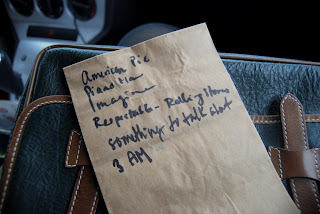 American Pie
Piano Man
Imagine
Respectable - Rolling Stones
something to talk about
3 AM